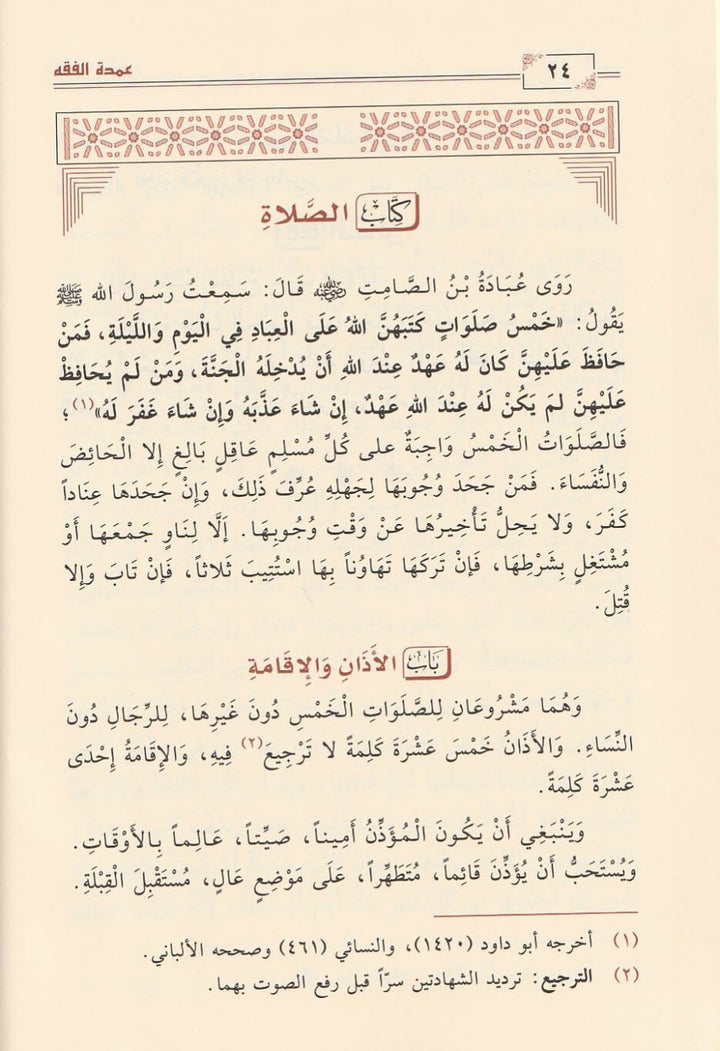 ٢٤
عمدة الفقه
كِتَابُ الصَّلَاةِ
رَوَى عُبَادَةُ بْنُ الصَّامِتِ رضي الله عنه قَالَ: سَمِعْتُ رَسُولَ الله ﷺ
يَقُولُ: «خَمْسُ صَلَوَاتٍ كَتَبَهُنَّ اللهُ عَلَى الْعِبَادِ فِي الْيَوْمِ وَاللَّيْلَةِ، فَمَنْ
حَافَظَ عَلَيْهِنَّ كَانَ لَهُ عَهْدٌ عِنْدَ اللهِ أَنْ يُدْخِلَهُ الْجَنَّةَ، وَمَنْ لَمْ يُحَافِظْ
عَلَيْهِنَّ لَمْ يَكُنْ لَهُ عِنْدَ اللهِ عَهْدٌ، إِنْ شَاءَ عَذَّبَهُ وَإِنْ شَاءَ غَفَرَ لَهُ»(١)؛
فَالصَّلَوَاتُ الْخَمْسُ وَاجِبَةٌ على كُلِّ مُسْلِمٍ عَاقِلٍ بَالِغٍ إِلا الْحَائِضَ
وَالنُّفَسَاءَ. فَمَنْ جَحَدَ وُجُوبَهَا لِجَهْلِهِ عُرِّفَ ذَلِكَ، وَإِنْ جَحَدَهَا عِنَاداً
كَفَرَ، وَلا يَحِلُّ تَأْخِيرُهَا عَنْ وَقْتِ وُجُوبِهَا. إِلَّا لِنَاوٍ جَمْعَهَا أَوْ
مُشْتَغِلٍ بِشَرْطِهَا، فَإِنْ تَرَكَهَا تَهَاوُناً بِهَا اسْتُتِيبَ ثَلاثاً، فَإِنْ تَابَ وَإِلا
قُتِلَ.
بَابُ الأَذَانِ وَالإِقَامَةِ
وَهُمَا مَشْرُوعَانِ لِلصَّلَوَاتِ الْخَمْسِ دُونَ غَيْرِهَا، لِلرِّجَالِ دُونَ
النِّسَاءِ. وَالأَذَانُ خَمْسَ عَشْرَةَ كَلِمَةً لا تَرْجِيعَ(٢) فِيهِ، وَالإِقَامَةُ إِحْدَى
عَشْرَةَ كَلِمَةً.
وَيَنْبَغِي أَنْ يَكُونَ الْمُؤَذِّنُ أَمِيناً، صَيِّتاً، عَالِماً بِالأَوْقَاتِ.
وَيُسْتَحَبُّ أَنْ يُؤَذِّنَ قَائِماً، مُتَطَهِّراً، عَلَى مَوْضِعٍ عَالٍ، مُسْتَقْبِلَ الْقِبْلَةِ.
(١) أخرجه أبو داود (١٤٢٠)، والنسائي (٤٦١) وصححه الألباني.
(٢) الترجيع: ترديد الشهادتين سرّاً قبل رفع الصوت بهما.